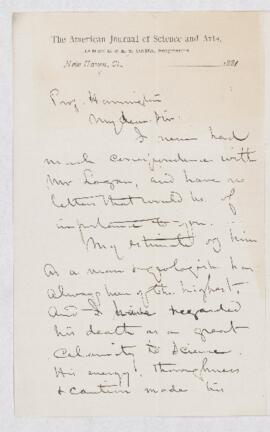 The American Journal of Science and Arts,
New Haven, Ct., 1881
Prof. Harrington
My dear Sir:
I never had
much correspondence with
Mr Logan, and have no
letters that would be of
importance to you.
My estimate of him
as a man & geologist has
always been of the highest,
and I have regarded
his death as a great
calamity to science.
His energy, thoroughness
& caution made his